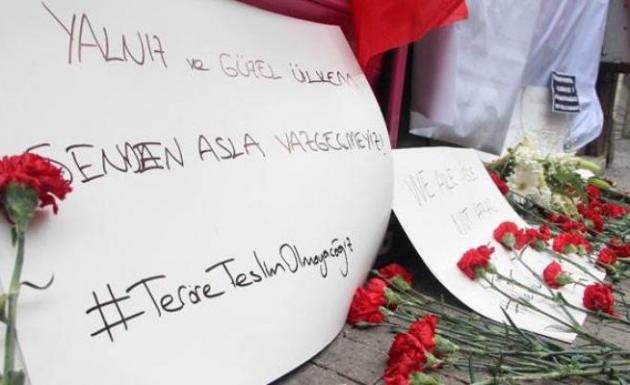 YALNIZ ve GÜZEL ÜLKEM
SENDEN ASLA VAZGEÇMEYİZ!
#TeröreTeslimOlmayacağız
WE ARE
NOT AFRAID